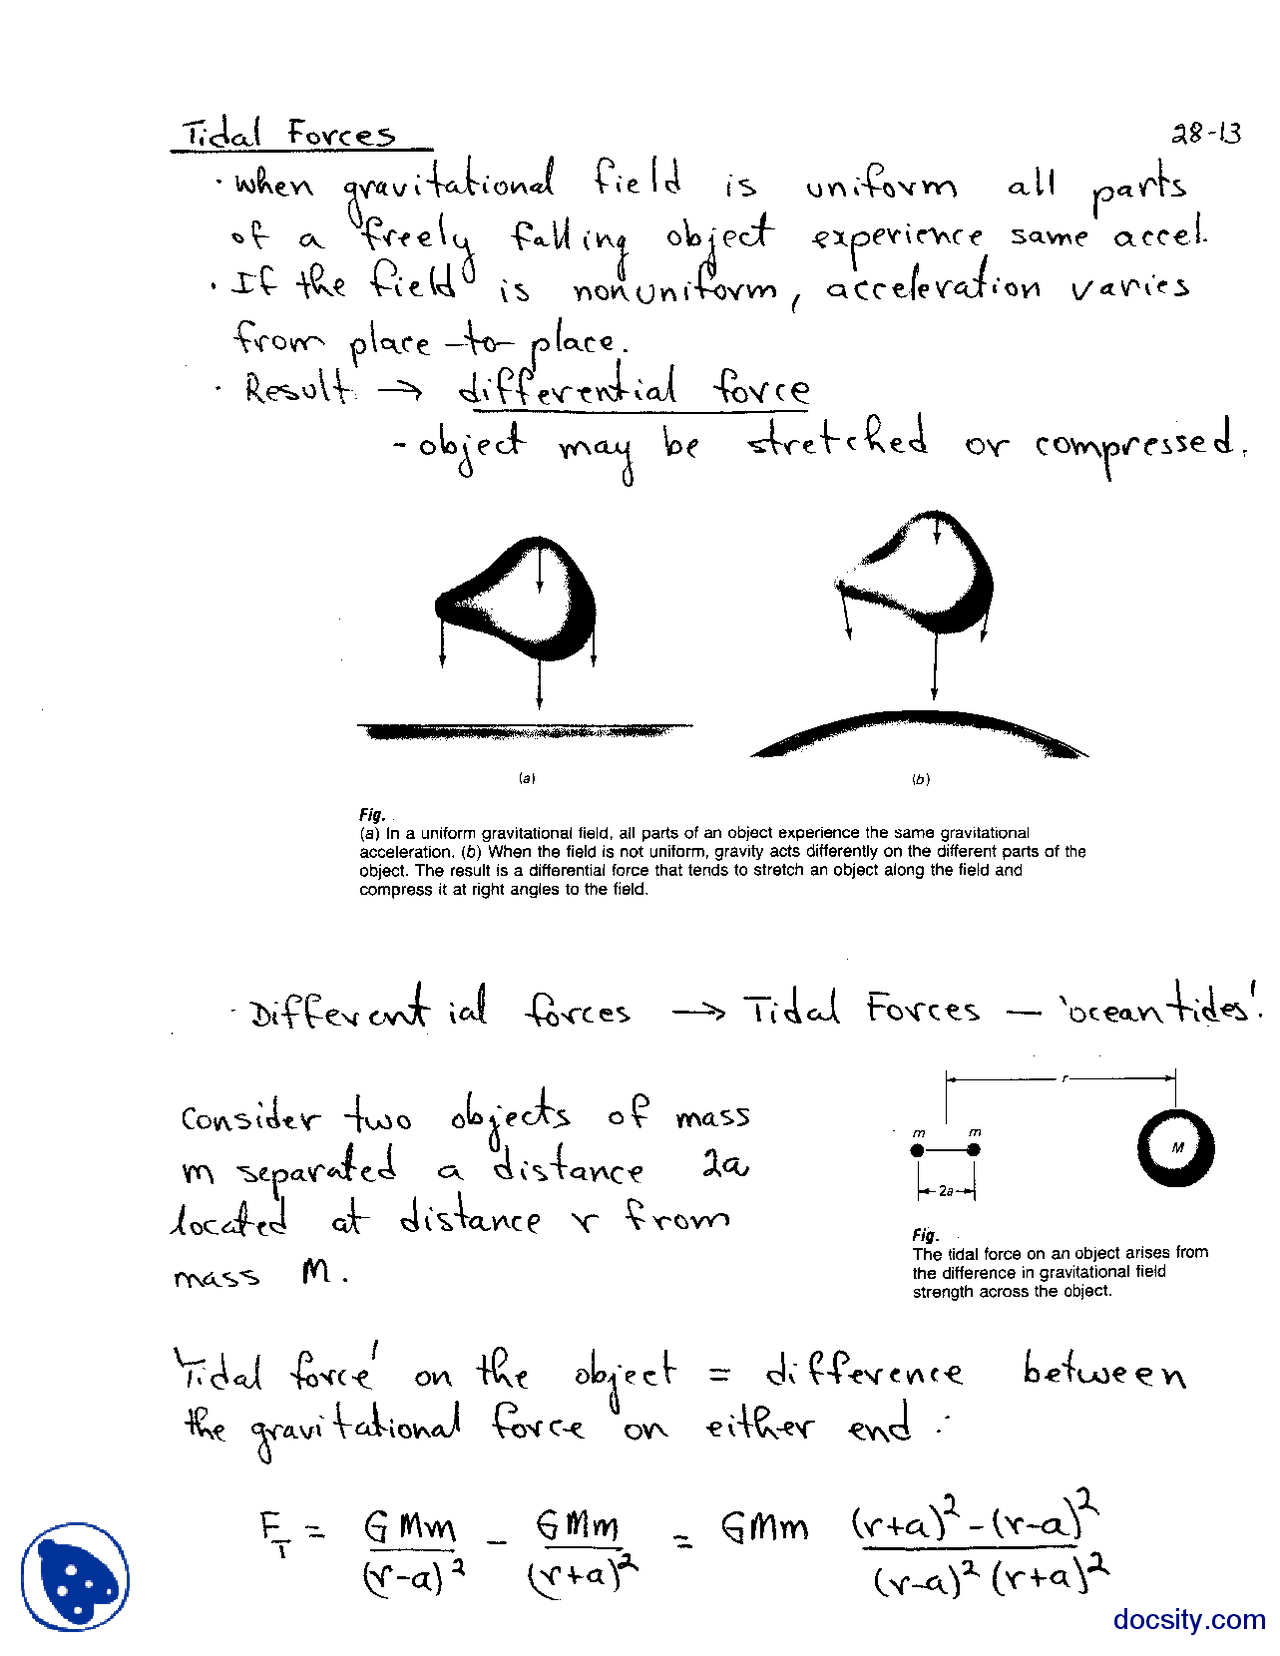 Tidal Forces
28-13
· when gravitational field is uniform all parts
of a freely falling object experience same accel.
· If the field is nonuniform, acceleration varies
from place-to-place.
· Result → differential force
- object may be stretched or compressed.
(a)
(b)
Fig.
(a) In a uniform gravitational field, all parts of an object experience the same gravitational
acceleration. (b) When the field is not uniform, gravity acts differently on the different parts of the
object. The result is a differential force that tends to stretch an object along the field and
compress it at right angles to the field.
· Differential forces → Tidal Forces — 'ocean tides'.
r
m
m
M
2a
Consider two objects of mass
m separated a distance 2a
located at distance r from
mass M.
Fig.
The tidal force on an object arises from
the difference in gravitational field
strength across the object.
'Tidal force' on the object = difference between
the gravitational force on either end:
F_T = GMm/(r-a)² - GMm/(r+a)² = GMm ((r+a)² - (r-a)²)/((r-a)² (r+a)²)
docsity.com